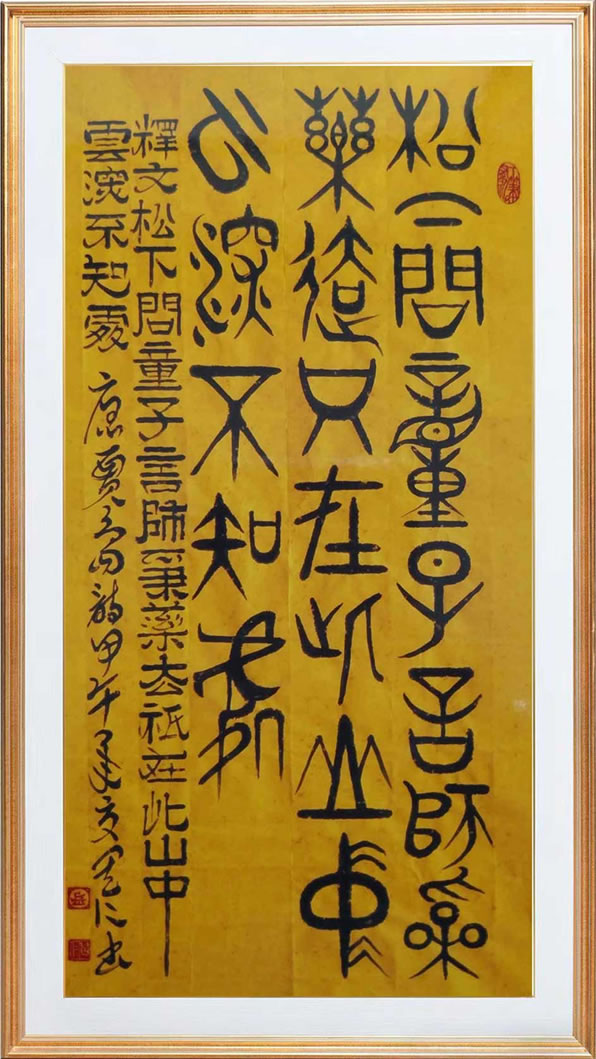 松下問童子言師采
藥去只在此山中
云深不知處
釋文松下問童子言師采藥去祇在此山中
雲深不知處 唐賈島詩甲午年書